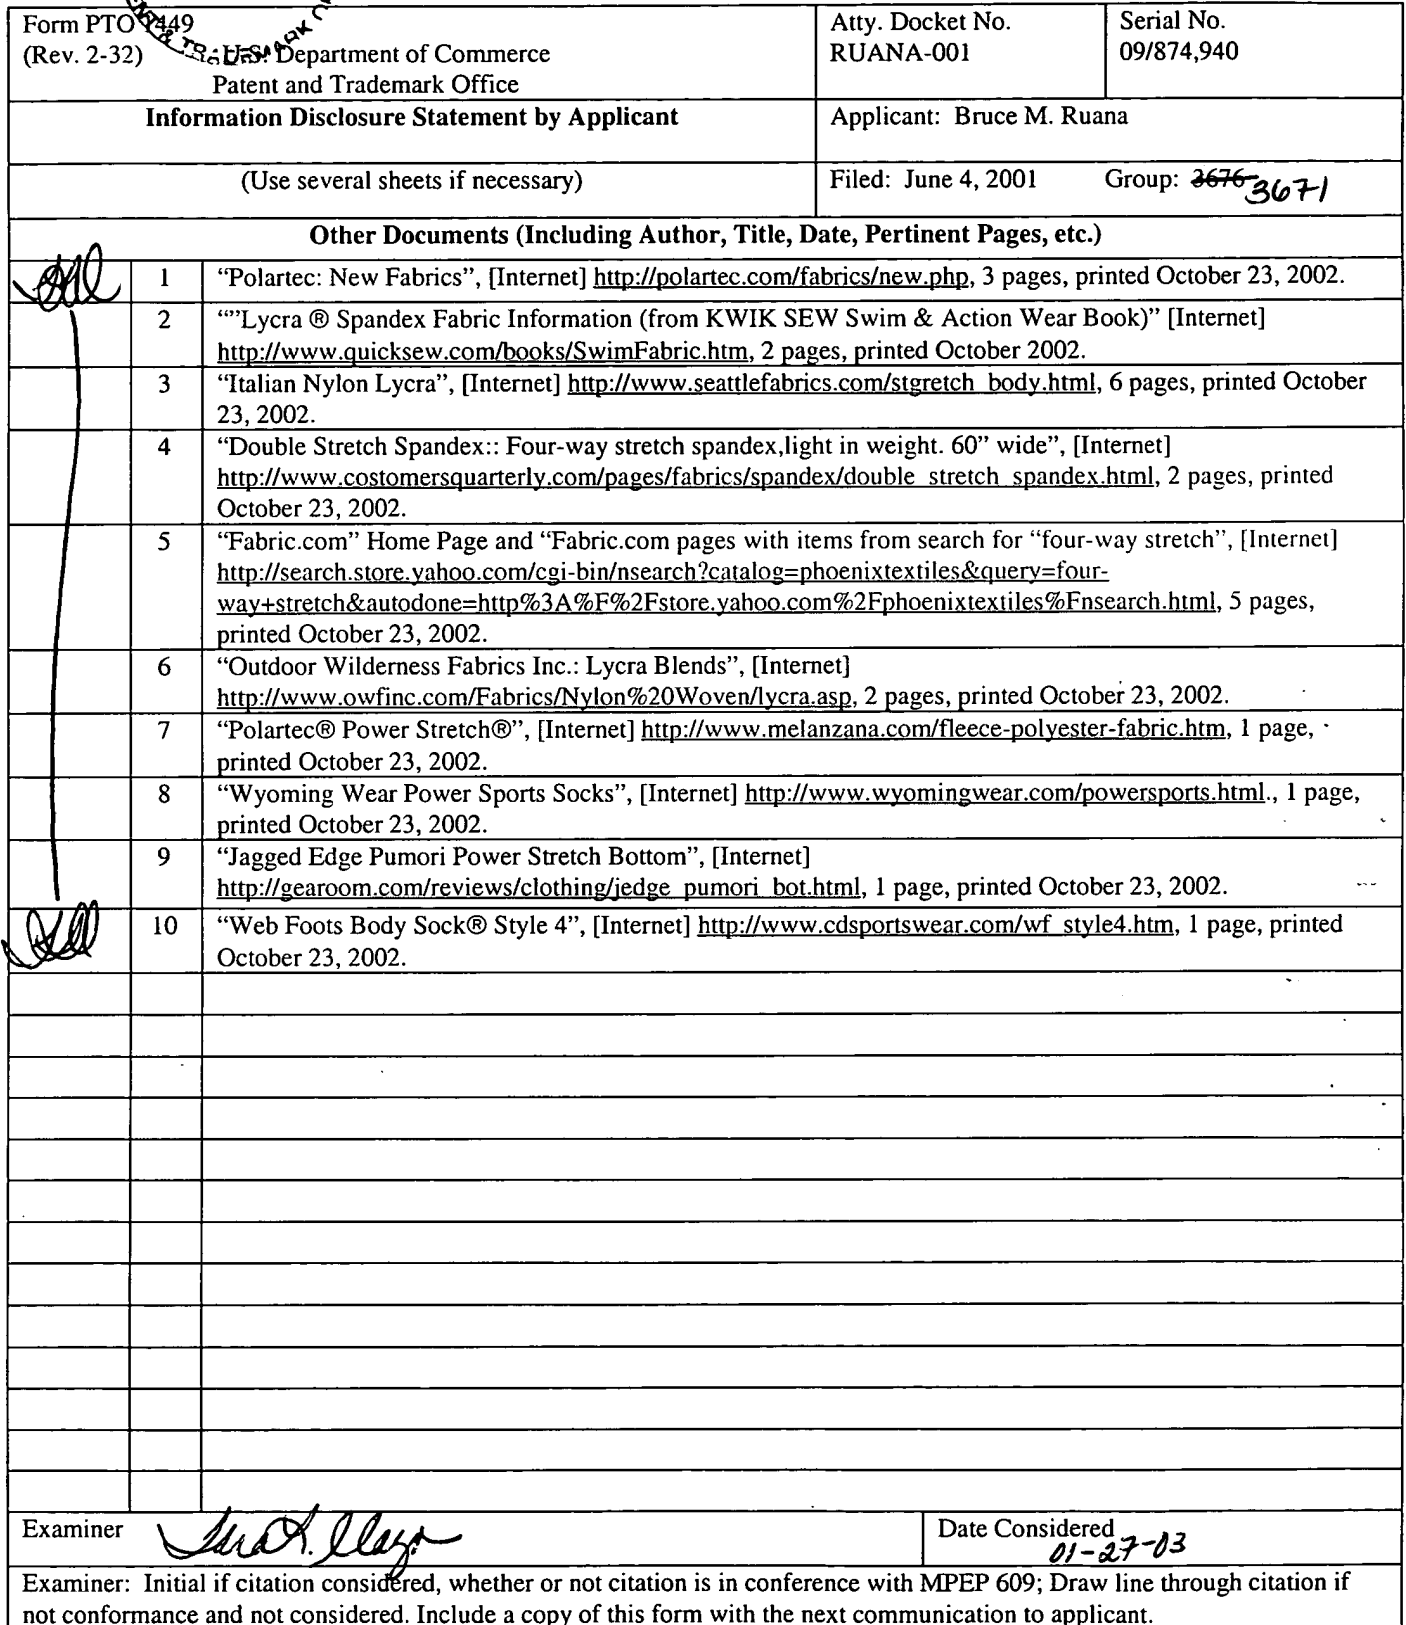 Form PTO 1449
(Rev. 2-32) U.S. Department of Commerce
Patent and Trademark Office
Atty. Docket No.
RUANA-001
Serial No.
09/874,940
Information Disclosure Statement by Applicant
Applicant: Bruce M. Ruana
(Use several sheets if necessary)
Filed: June 4, 2001 Group: 3676 3671
Other Documents (Including Author, Title, Date, Pertinent Pages, etc.)
1 “Polartec: New Fabrics”, [Internet] http://polartec.com/fabrics/new.php, 3 pages, printed October 23, 2002.
2 “”Lycra ® Spandex Fabric Information (from KWIK SEW Swim & Action Wear Book)” [Internet]
http://www.quicksew.com/books/SwimFabric.htm, 2 pages, printed October 2002.
3 “Italian Nylon Lycra”, [Internet] http://www.seattlefabrics.com/stgretch_body.html, 6 pages, printed October
23, 2002.
4 “Double Stretch Spandex:: Four-way stretch spandex,light in weight. 60” wide”, [Internet]
http://www.costomersquarterly.com/pages/fabrics/spandex/double_stretch_spandex.html, 2 pages, printed
October 23, 2002.
5 “Fabric.com” Home Page and “Fabric.com pages with items from search for “four-way stretch”, [Internet]
http://search.store.yahoo.com/cgi-bin/nsearch?catalog=phoenixtextiles&query=four-
way+stretch&autodone=http%3A%F%2Fstore.yahoo.com%2Fphoenixtextiles%Fnsearch.html, 5 pages,
printed October 23, 2002.
6 “Outdoor Wilderness Fabrics Inc.: Lycra Blends”, [Internet]
http://www.owfinc.com/Fabrics/Nylon%20Woven/lycra.asp, 2 pages, printed October 23, 2002.
7 “Polartec® Power Stretch®”, [Internet] http://www.melanzana.com/fleece-polyester-fabric.htm, 1 page,
printed October 23, 2002.
8 “Wyoming Wear Power Sports Socks”, [Internet] http://www.wyomingwear.com/powersports.html., 1 page,
printed October 23, 2002.
9 “Jagged Edge Pumori Power Stretch Bottom”, [Internet]
http://gearoom.com/reviews/clothing/jedge_pumori_bot.html, 1 page, printed October 23, 2002.
10 “Web Foots Body Sock® Style 4”, [Internet] http://www.cdsportswear.com/wf_style4.htm, 1 page, printed
October 23, 2002.
Examiner
Date Considered
01-27-03
Examiner: Initial if citation considered, whether or not citation is in conference with MPEP 609; Draw line through citation if
not conformance and not considered. Include a copy of this form with the next communication to applicant.